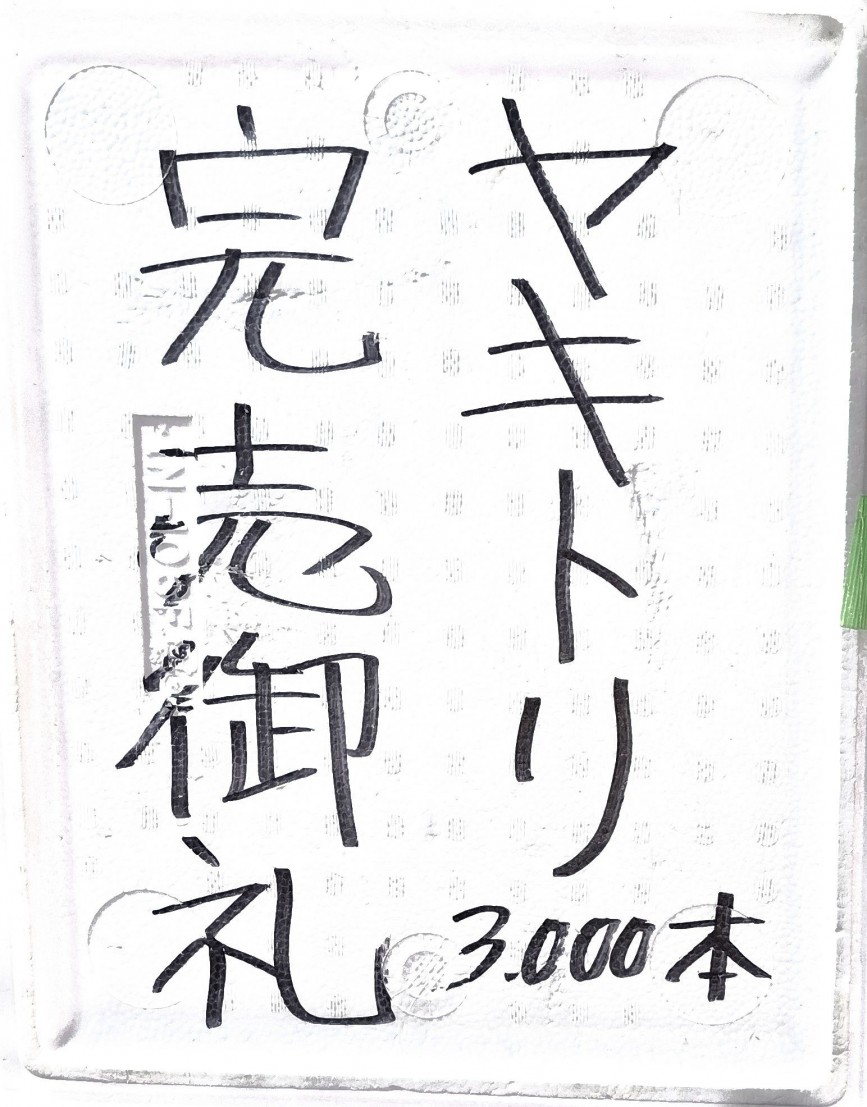 ヤキトリ
3.000本
完売御礼